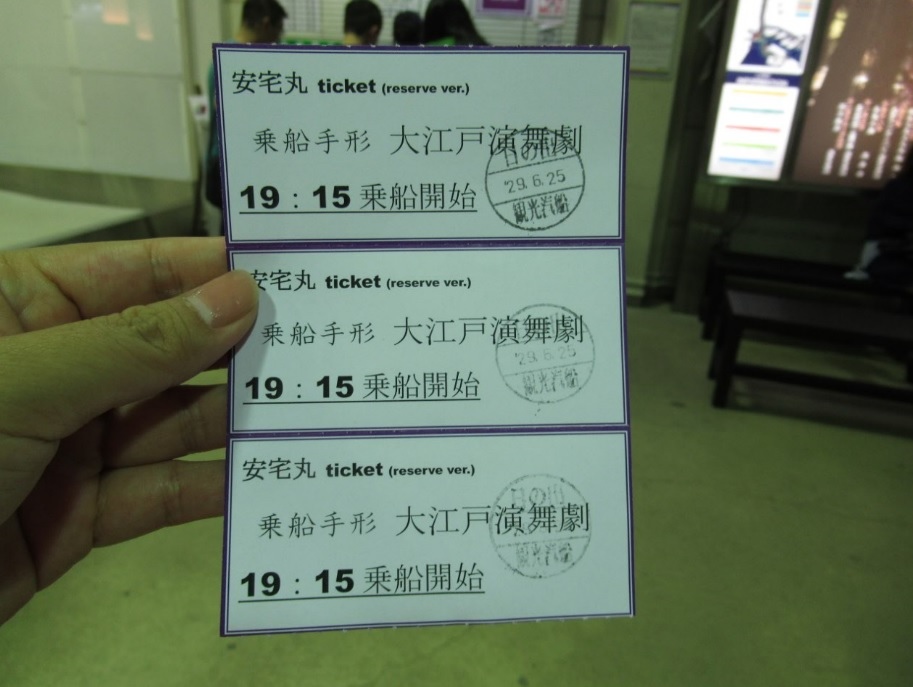 安宅丸 ticket (reserve ver.)
乗船手形 大江戸演舞劇
19：15 乗船開始
日の出
'29.6.25
観光汽船
安宅丸 ticket (reserve ver.)
乗船手形 大江戸演舞劇
19：15 乗船開始
日の出
'29.6.25
観光汽船
安宅丸 ticket (reserve ver.)
乗船手形 大江戸演舞劇
19：15 乗船開始
日の出
観光汽船